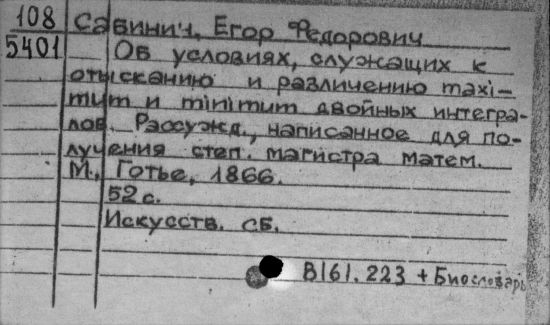 108
5401
Савинич, Егор Федорович
Об условиях, служащих к
отысканию и различению maxi-
mum и minimum двойных интегра-
лов. Рассужд., написанное для по-
лучения степ. магистра матем.
М., Готье, 1866.
52 с.
Искусств. сб.
В161.223 + Биословарь